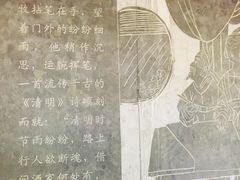 牧拈笔在手，望
着门外的纷纷细
雨，他稍作沉
思，运腕挥笔，
一首流传千古的
《清明》诗顷刻
而就：“清明时
节雨纷纷，路上
行人欲断魂，借
问酒家何处有，